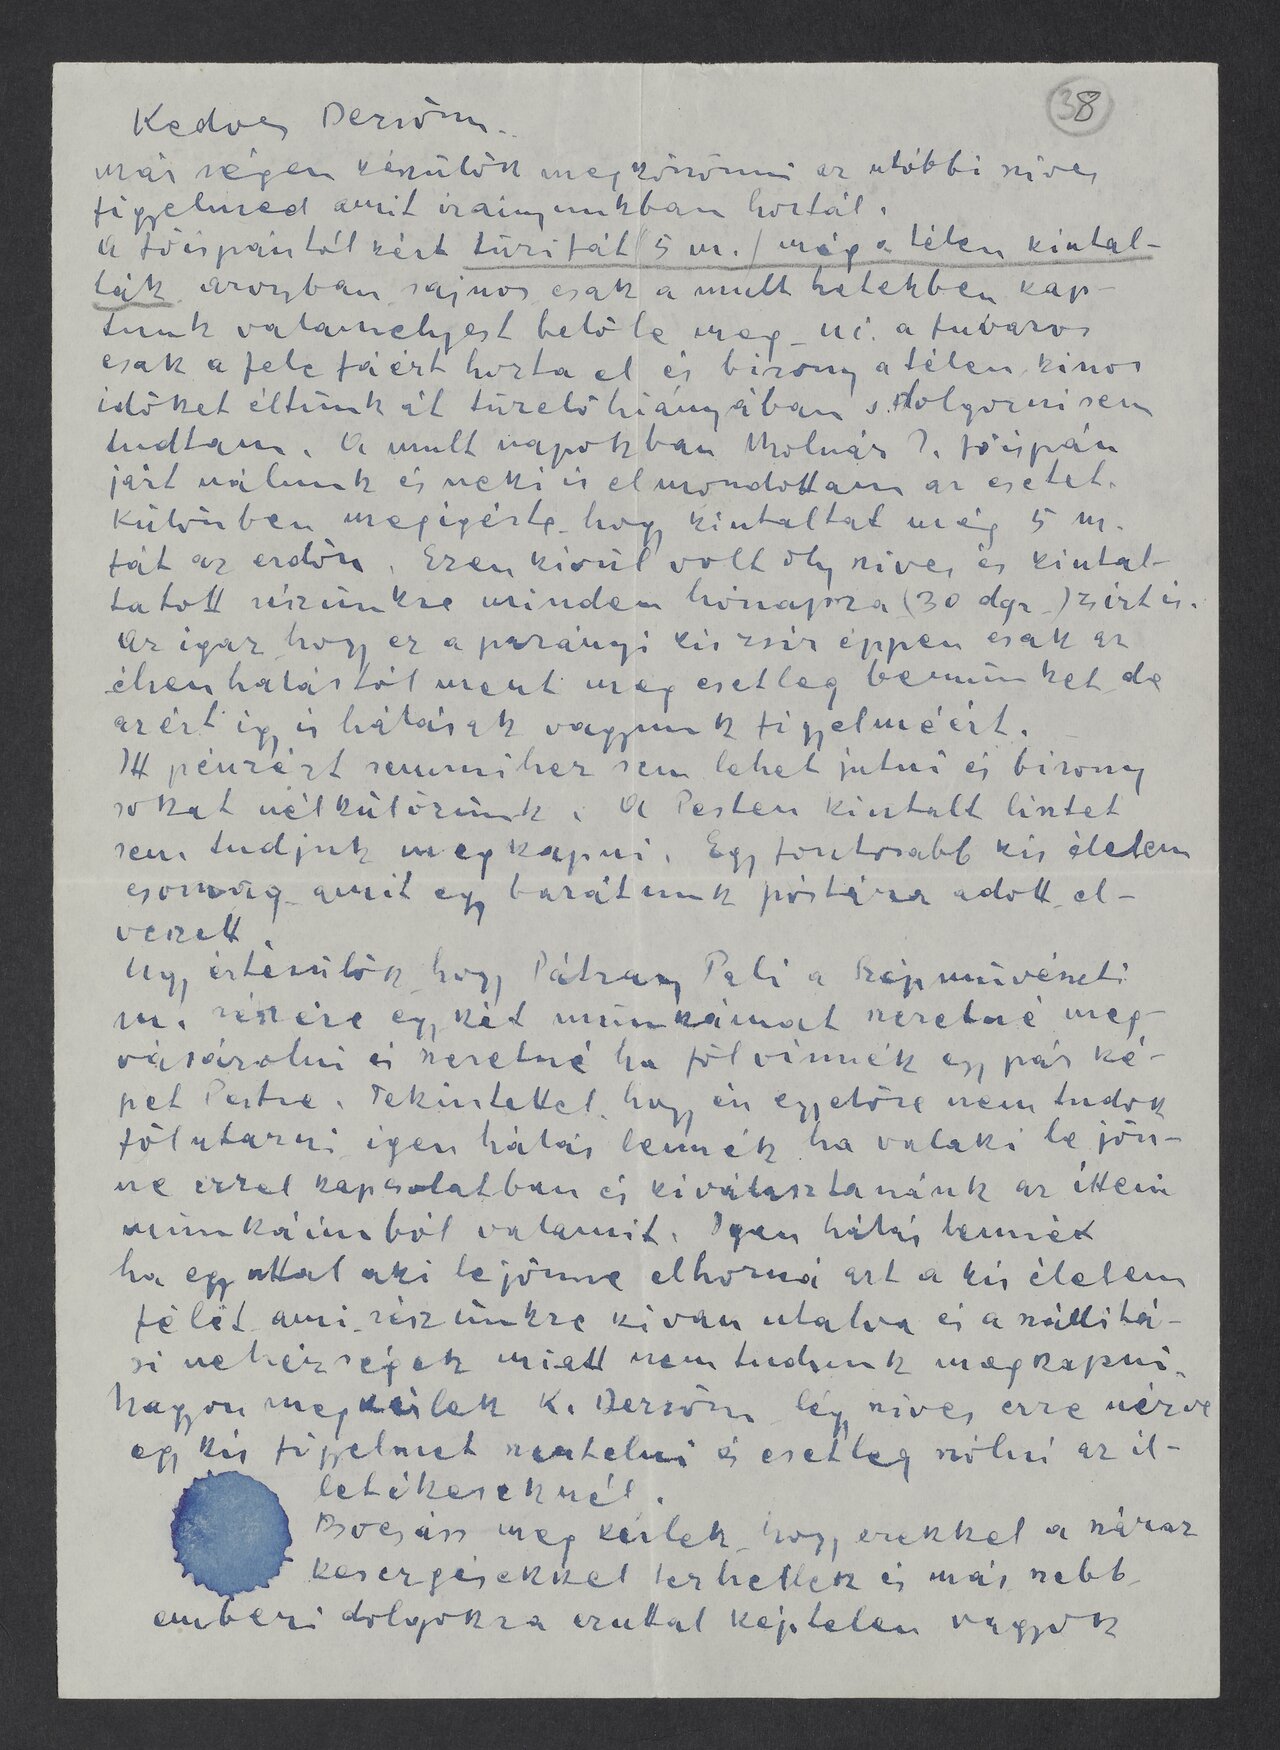 38
Kedves Dezsőm.
már régen készülök megköszönni az utóbbi szives
figyelmed amit irányunkban hoztál.
A főispántól kért tűzifát (5 m.) még a télen kiutal-
ták azonban sajnos csak a mult hetekben kap-
tunk valamelyest belőle meg_ ni. a fuvaros
csak a fele fáért hozta el és bizony a télen kinos
időket éltünk át tüzelő hiányában s dolgozni sem
tudtam. A mult napokban Molnár I. főispán
járt nálunk és neki is elmondottam az esetet.
Különben megigérte_ hogy kiutaltat még 5 m.
fát az erdőn. Ezen kivül volt oly szives és kiutal-
tatott részünkre minden hónapra (30 dgr_) zsirt is.
Az igaz hogy ez a parányi kis zsir éppen csak az
éhenhalástól ment meg esetleg bennünket de
azért igy is hálásak vagyunk figyelméért.
Itt pénzért semmihez sem lehet jutni és bizony
sokat nélkülözünk. A Pesten kiutalt lisztet
sem tudjuk megkapni. Egy fontosabb kis élelem
csomag_ amit egy barátunk póstára adott_ el-
veszett.
Ugy értesülök_ hogy Pátzay Pali a Szépművészeti
m. részére egy két munkámat szeretné meg-
vásárolni és szeretné ha fölvinnék egy pár ké-
pet Pestre. Tekintettel_ hogy én egyelőre nem tudok
fölutazni igen hálás lennék ha valaki le jön-
ne ezzel kapcsolatban és kiválasztanánk az itteni
munkáimból valamit. Igen hálás lennék
ha egyuttal aki lejönne elhozná azt a kis élelem
félét ami részünkre ki van utalva és a szállitá-
si nehézségek miatt nem tudunk megkapni.
Nagyon megkérlek K. Dezsőm légy szives erre nézve
egy kis figyelmet szentelni és esetleg szólni az il-
letékeseknél.
Bocsáss meg kérlek_ hogy ezekkel a száraz
kesergésekkel terhellek és más szebb
emberi dolgokra ezuttal képtelen vagyok